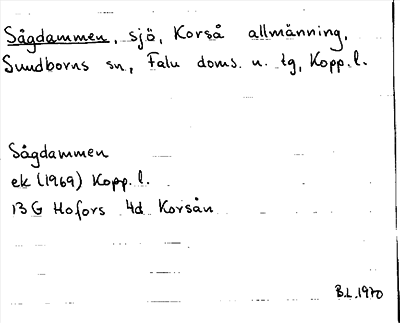 Sågdammen, sjö, Korså allmänning,
Sundborns sn, Falu doms. n. tg, Kopp. l.
Sågdammen
ek (1969) Kopp. l.
13 G Hofors 4d Korsån
B.L. 1970